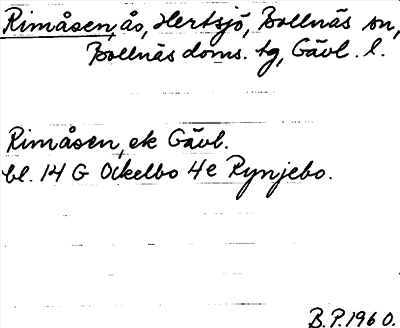 Rimåsen, ås, Hertsjö, Bollnäs sn,
Bollnäs doms. tg, Gävl. l.
Rimåsen, ek Gävl.
bl. 14 G Ockelbo 4e Rynjebo.
B.P. 1960.